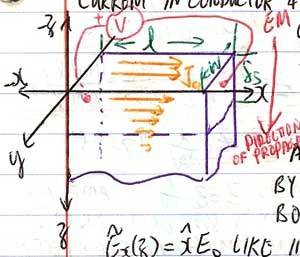 CURRENT IN CONDUCTOR
EM
-z
+ V -
l
-x
I
w
δs
x
y
DIRECTION
OF PROPAG
z
A
BY
BO
Ẽx(z) = x̂ E₀ LIKE